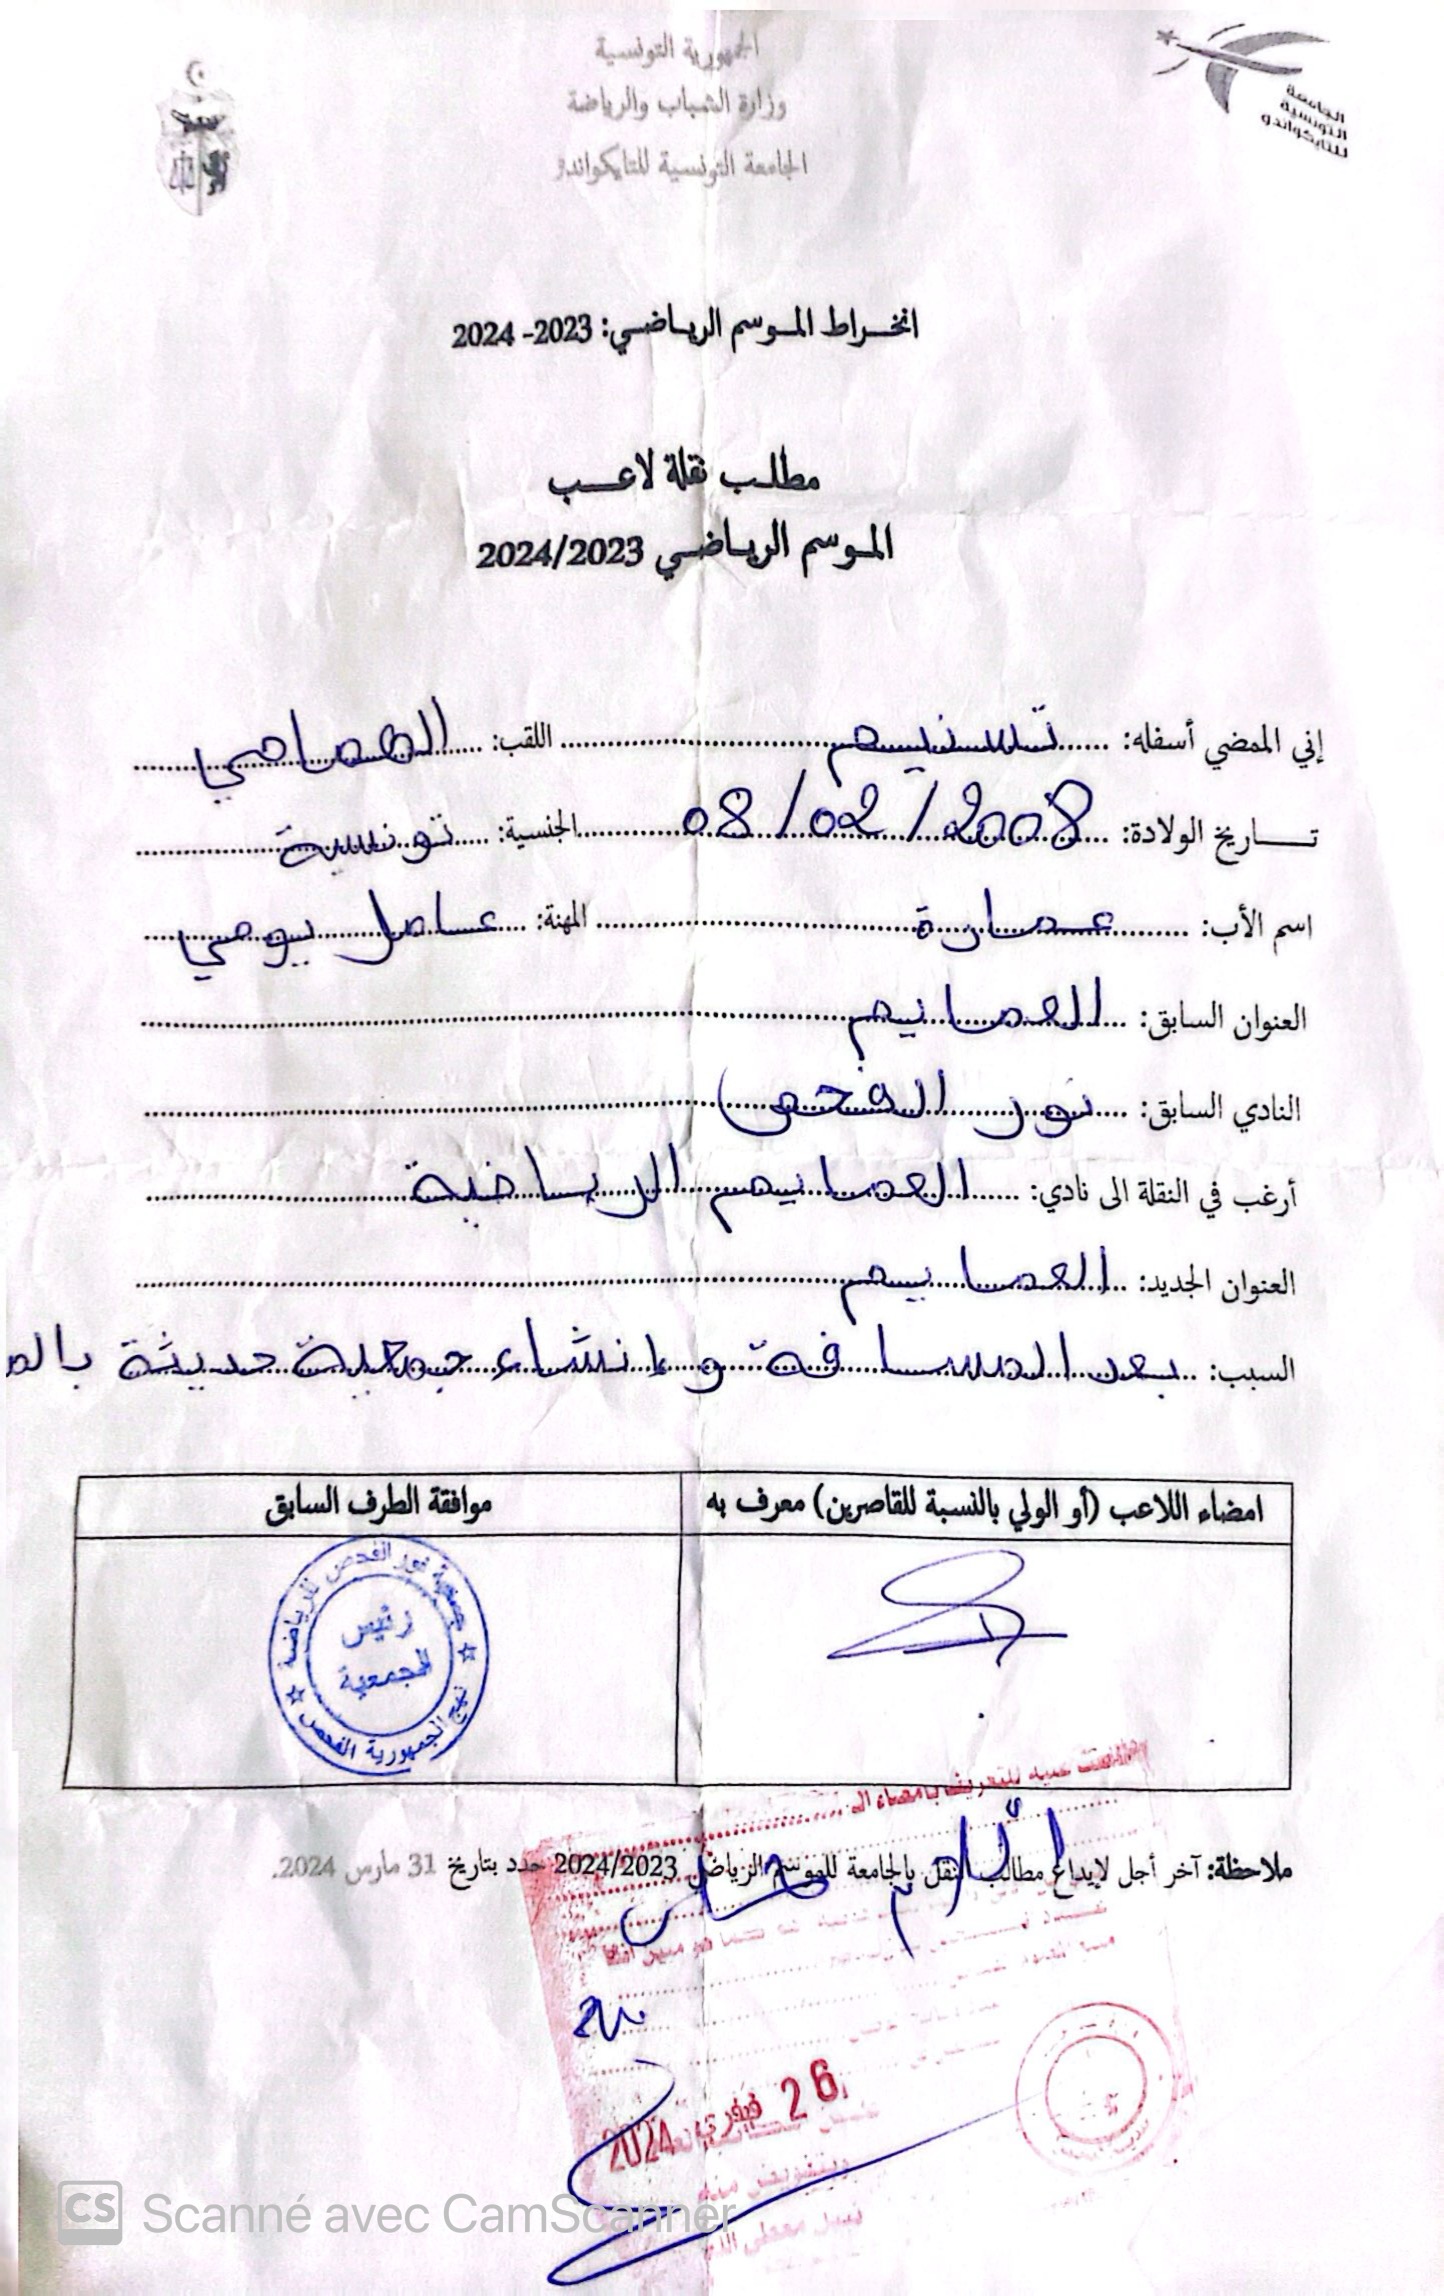 الجمهورية التونسية
وزارة الشباب والرياضة
الجامعة التونسية للتايكواندو
الجامعة
التونسية
للتايكواندو
انخراط الموسم الرياضي: 2023- 2024
مطلب نقلة لاعب
الموسم الرياضي 2024/2023
إني الممضي أسفله: تسنيم اللقب: الهمامي
تاريخ الولادة: 08/02/2008 الجنسية: تونسية
اسم الأب: عمارة المهنة: عامل يومي
العنوان السابق: العمايم
النادي السابق: نور الفحص
أرغب في النقلة الى نادي: العمايم الرياضية
العنوان الجديد: العمايم
السبب: بعد المسافة و إنشاء جمعية حديثة
امضاء اللاعب (أو الولي بالنسبة للقاصرين) معرف به
موافقة الطرف السابق
جمعية نور الفحص للرياضة
رئيس
الجمعية
نهج الجمهورية الفحص
للتعريف بامضاء
ملاحظة: آخر أجل لإيداع مطالب النقل بالجامعة للموسم الرياضي 2024/2023 حدد بتاريخ 31 مارس 2024.
26 فيفري 2024
CS Scanné avec CamScanner